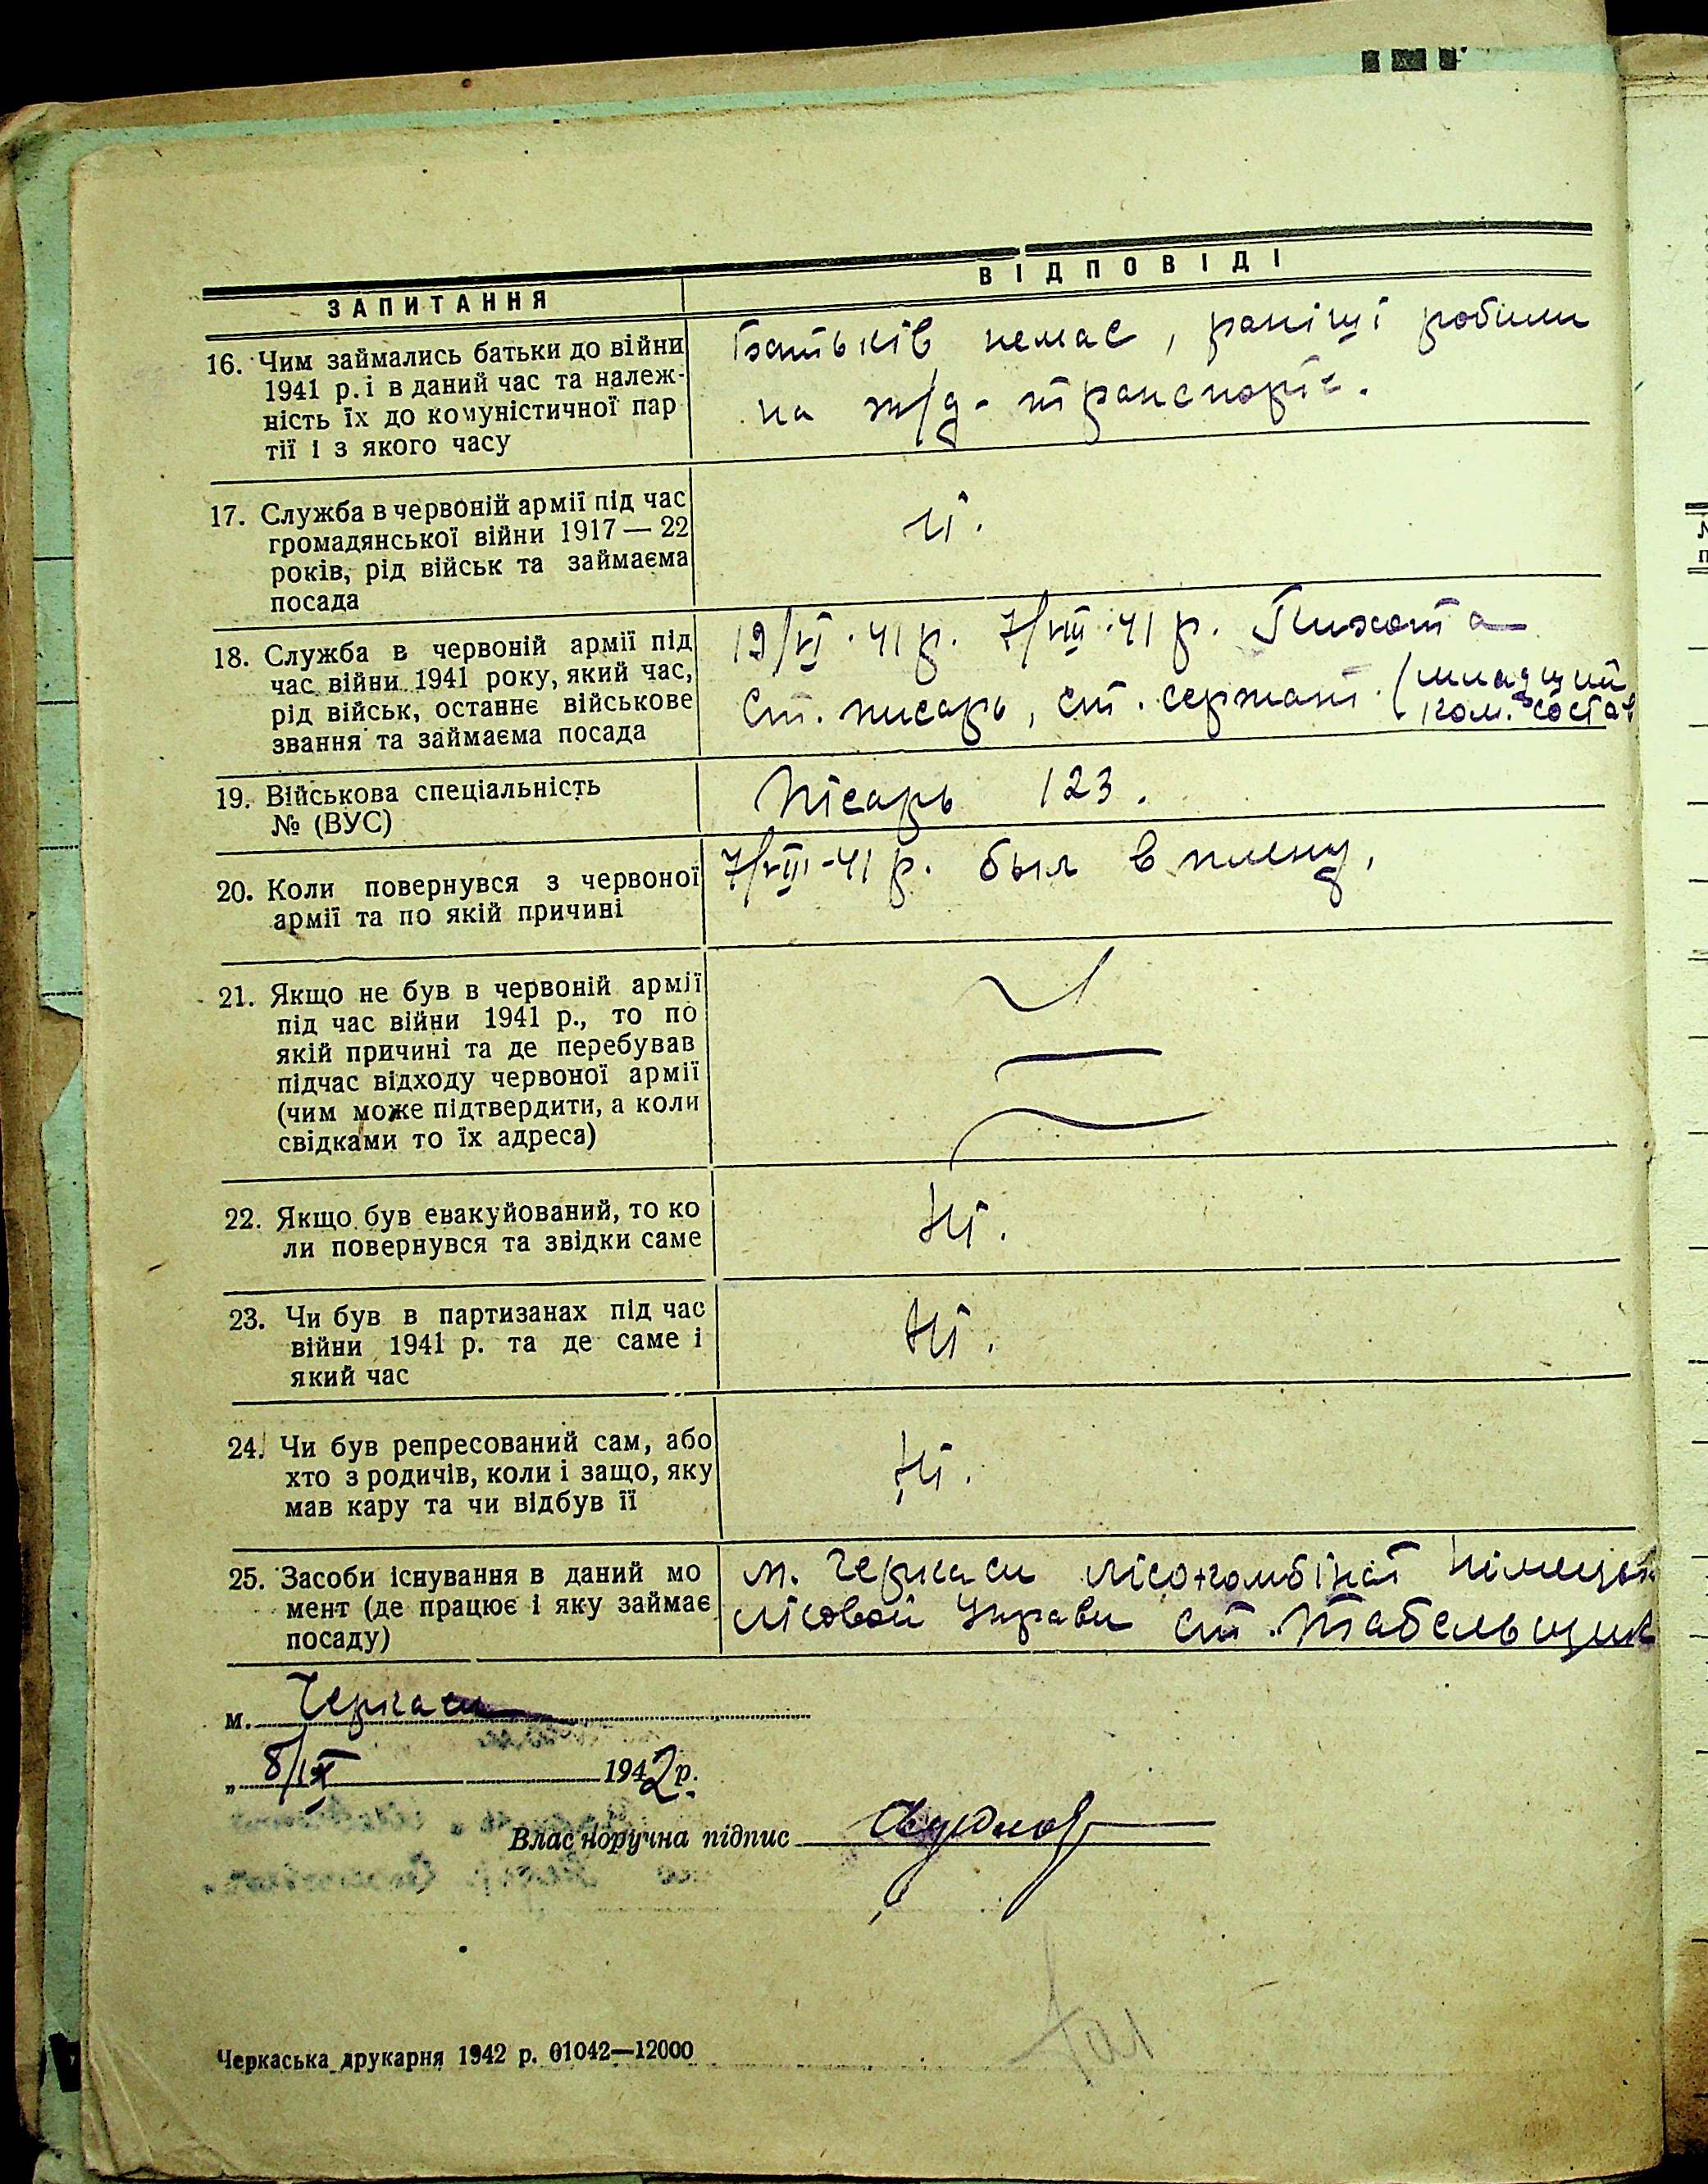 ЗАПИТАННЯ
ВІДПОВІДІ
16. Чим займались батьки до війни
1941 р. і в даний час та належ-
ність їх до комуністичної пар
тії і з якого часу
Батьків немає, раніщі робили
на ж/д - транспорті.
17. Служба в червоній армії під час
громадянської війни 1917 — 22
років, рід військ та займаєма
посада
ні.
18. Служба в червоній армії під
час війни 1941 року, який час,
рід військ, останнє військове
звання та займаєма посада
19/VI · 41 р. 7/VIII · 41 р. Пихота
ст. писарь, ст. сержант. (младщий
ком. состав
19. Військова спеціальність
№ (ВУС)
Пісарь 123.
20. Коли повернувся з червоної
армії та по якій причині
7/VIII - 41 р. был в плену.
21. Якщо не був в червоній армії
під час війни 1941 р., то по
якій причині та де перебував
підчас відходу червоної армії
(чим може підтвердити, а коли
свідками то їх адреса)
22. Якщо був евакуйований, то ко
ли повернувся та звідки саме
Ні.
23. Чи був в партизанах під час
війни 1941 р. та де саме і
який час
Ні.
24. Чи був репресований сам, або
хто з родичів, коли і защо, яку
мав кару та чи відбув її
Ні.
25. Засоби існування в даний мо
мент (де працює і яку займає
посаду)
м. Черкаси лісокомбінат
лісовой Управи ст. Табельщик
м. Черкаси
„ 8/IX 1942 р.
Власноручна підпис
Черкаська друкарня 1942 р. 01042—12000